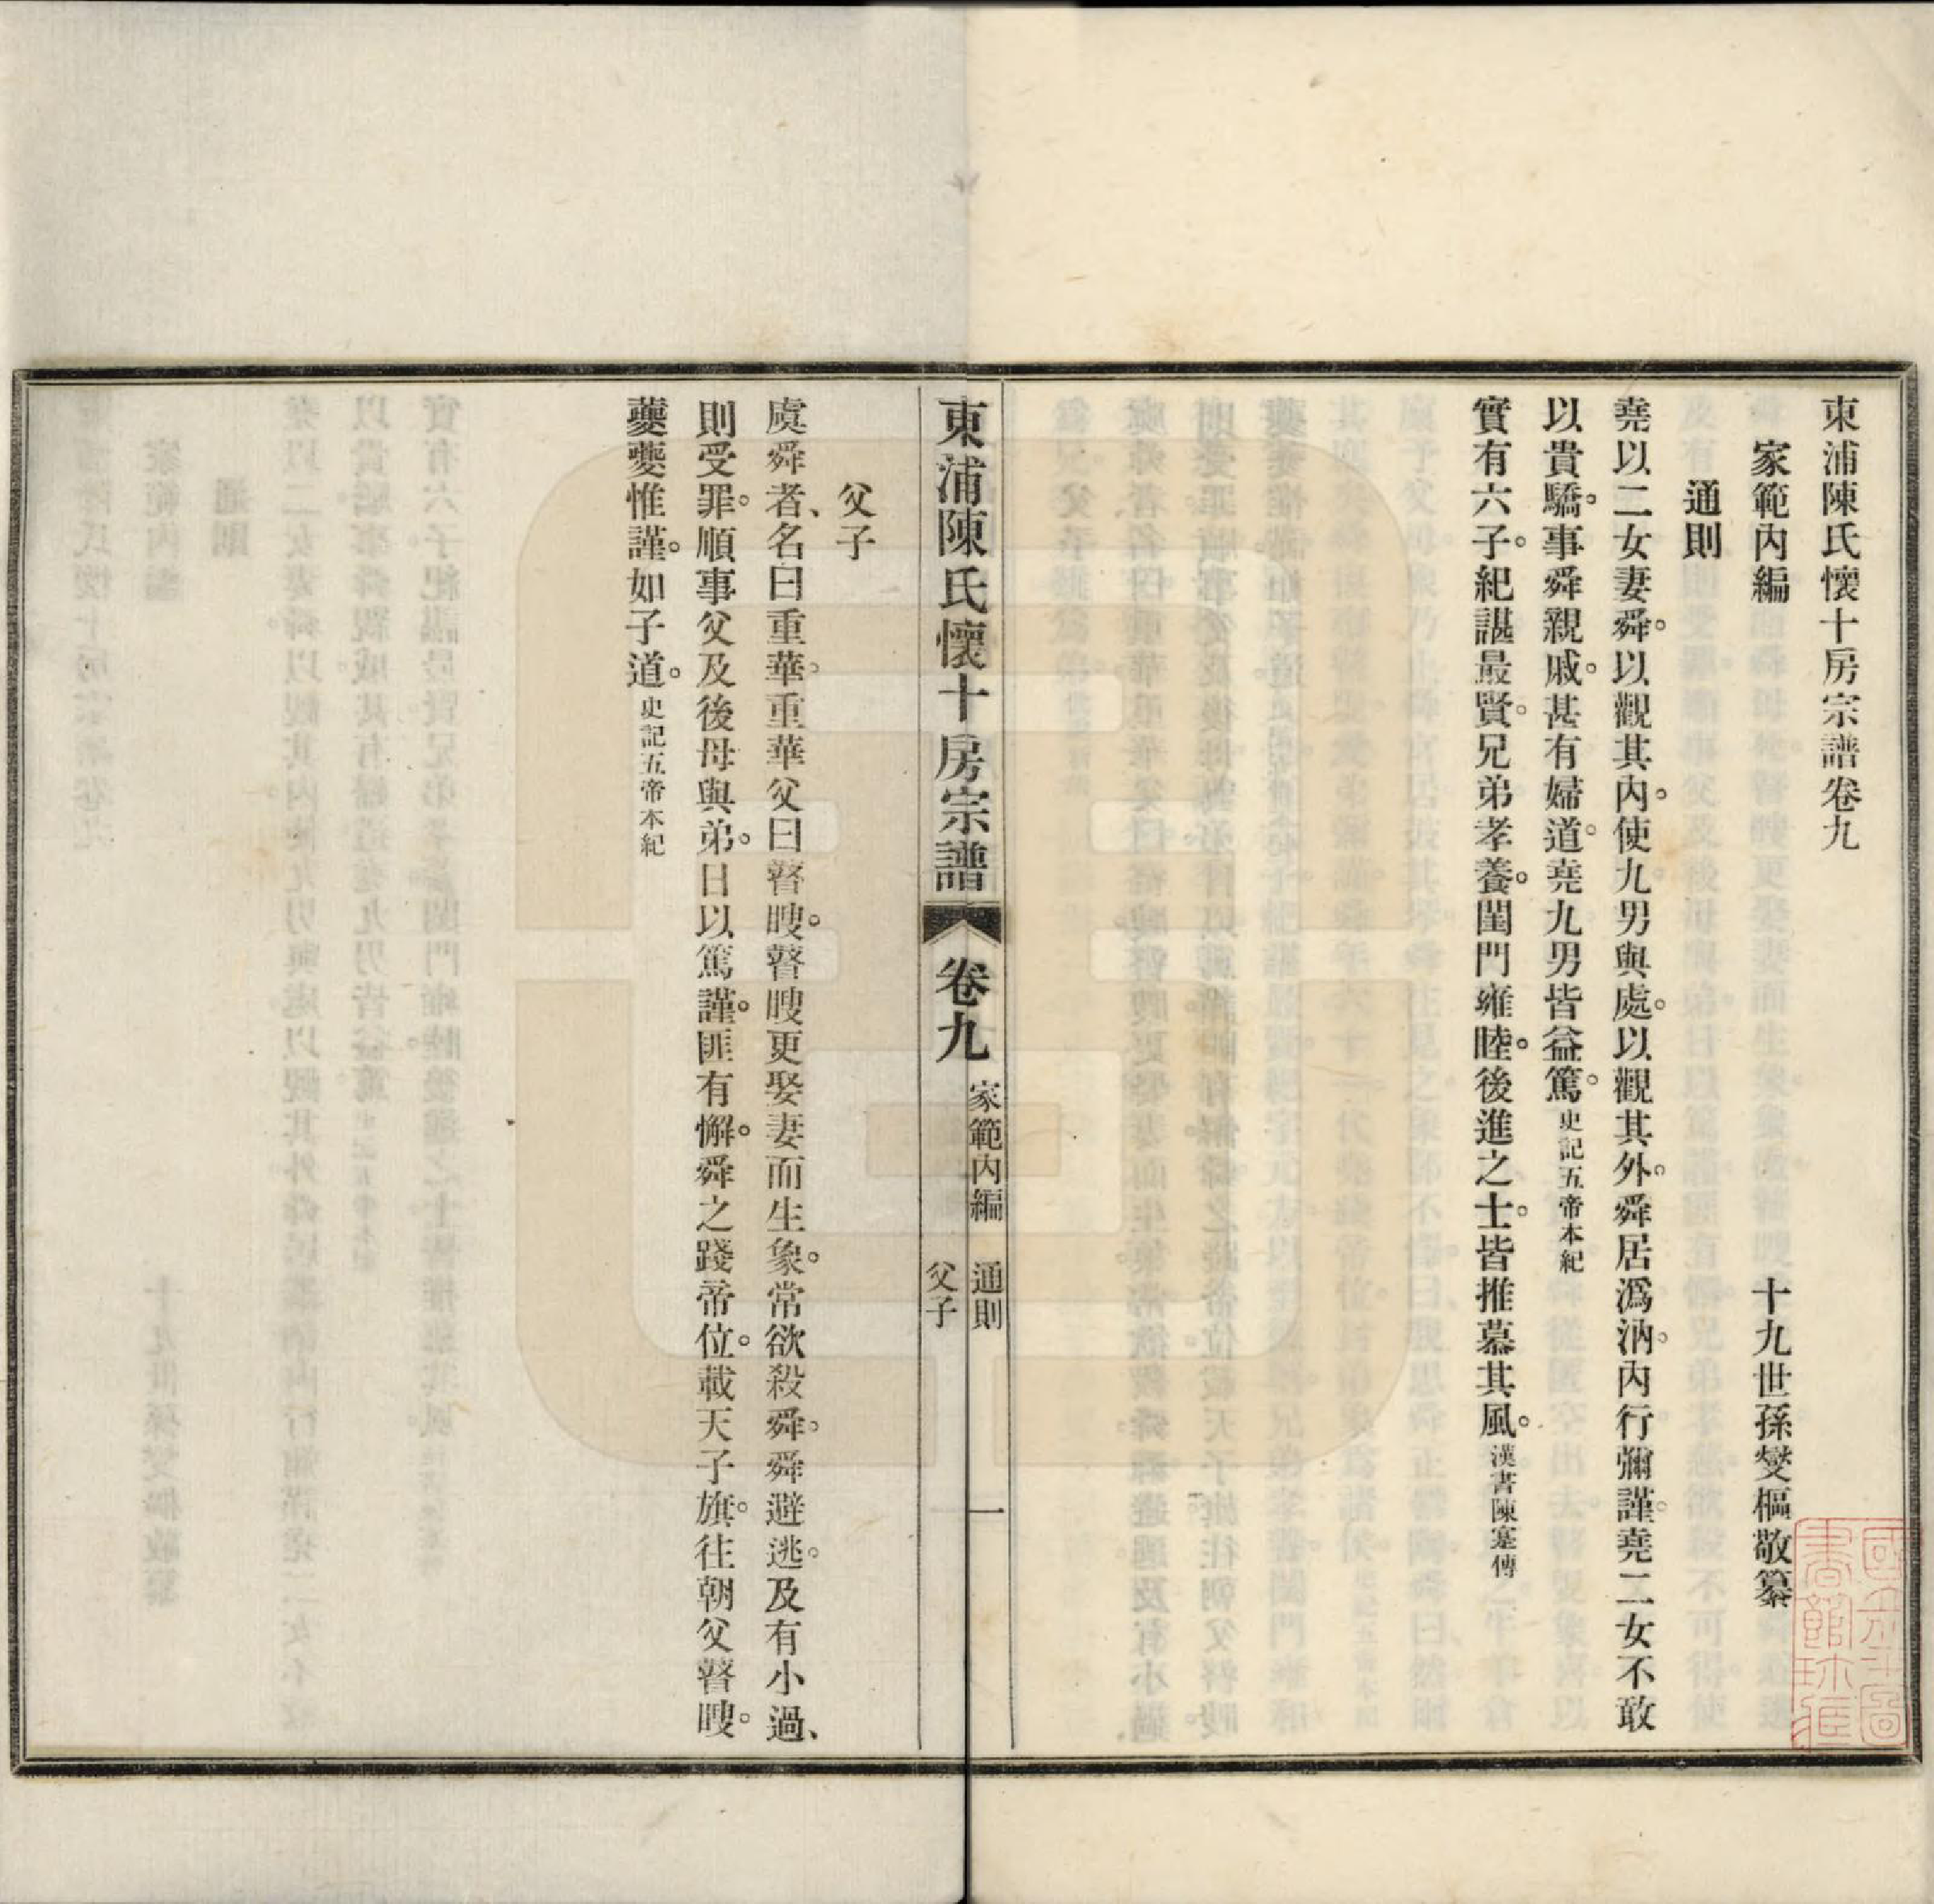 東浦陳氏懷十房宗譜卷九
家範內編　十九世孫燮樞敬纂
通則
堯以二女妻舜。以觀其內。使九男與處。以觀其外。舜居潙汭。內行彌謹。堯二女不敢
以貴驕。事舜親戚。甚有婦道。堯九男皆益篤。史記五帝本紀
實有六子。紀諶最賢。兄弟孝養。閨門雍睦。後進之士。皆推慕其風。漢書陳寔傳
東浦陳氏懷十房宗譜　卷九　家範內編　通則　父子　一
父子
虞舜者、名曰重華。重華父曰瞽瞍。瞽瞍更娶妻而生象。常欲殺舜。舜避逃。及有小過、
則受罪。順事父及後母與弟。日以篤謹。匪有懈。舜之踐帝位。載天子旗。往朝父瞽瞍。
夔夔惟謹。如子道。史記五帝本紀
國立北平圖
書館珍藏